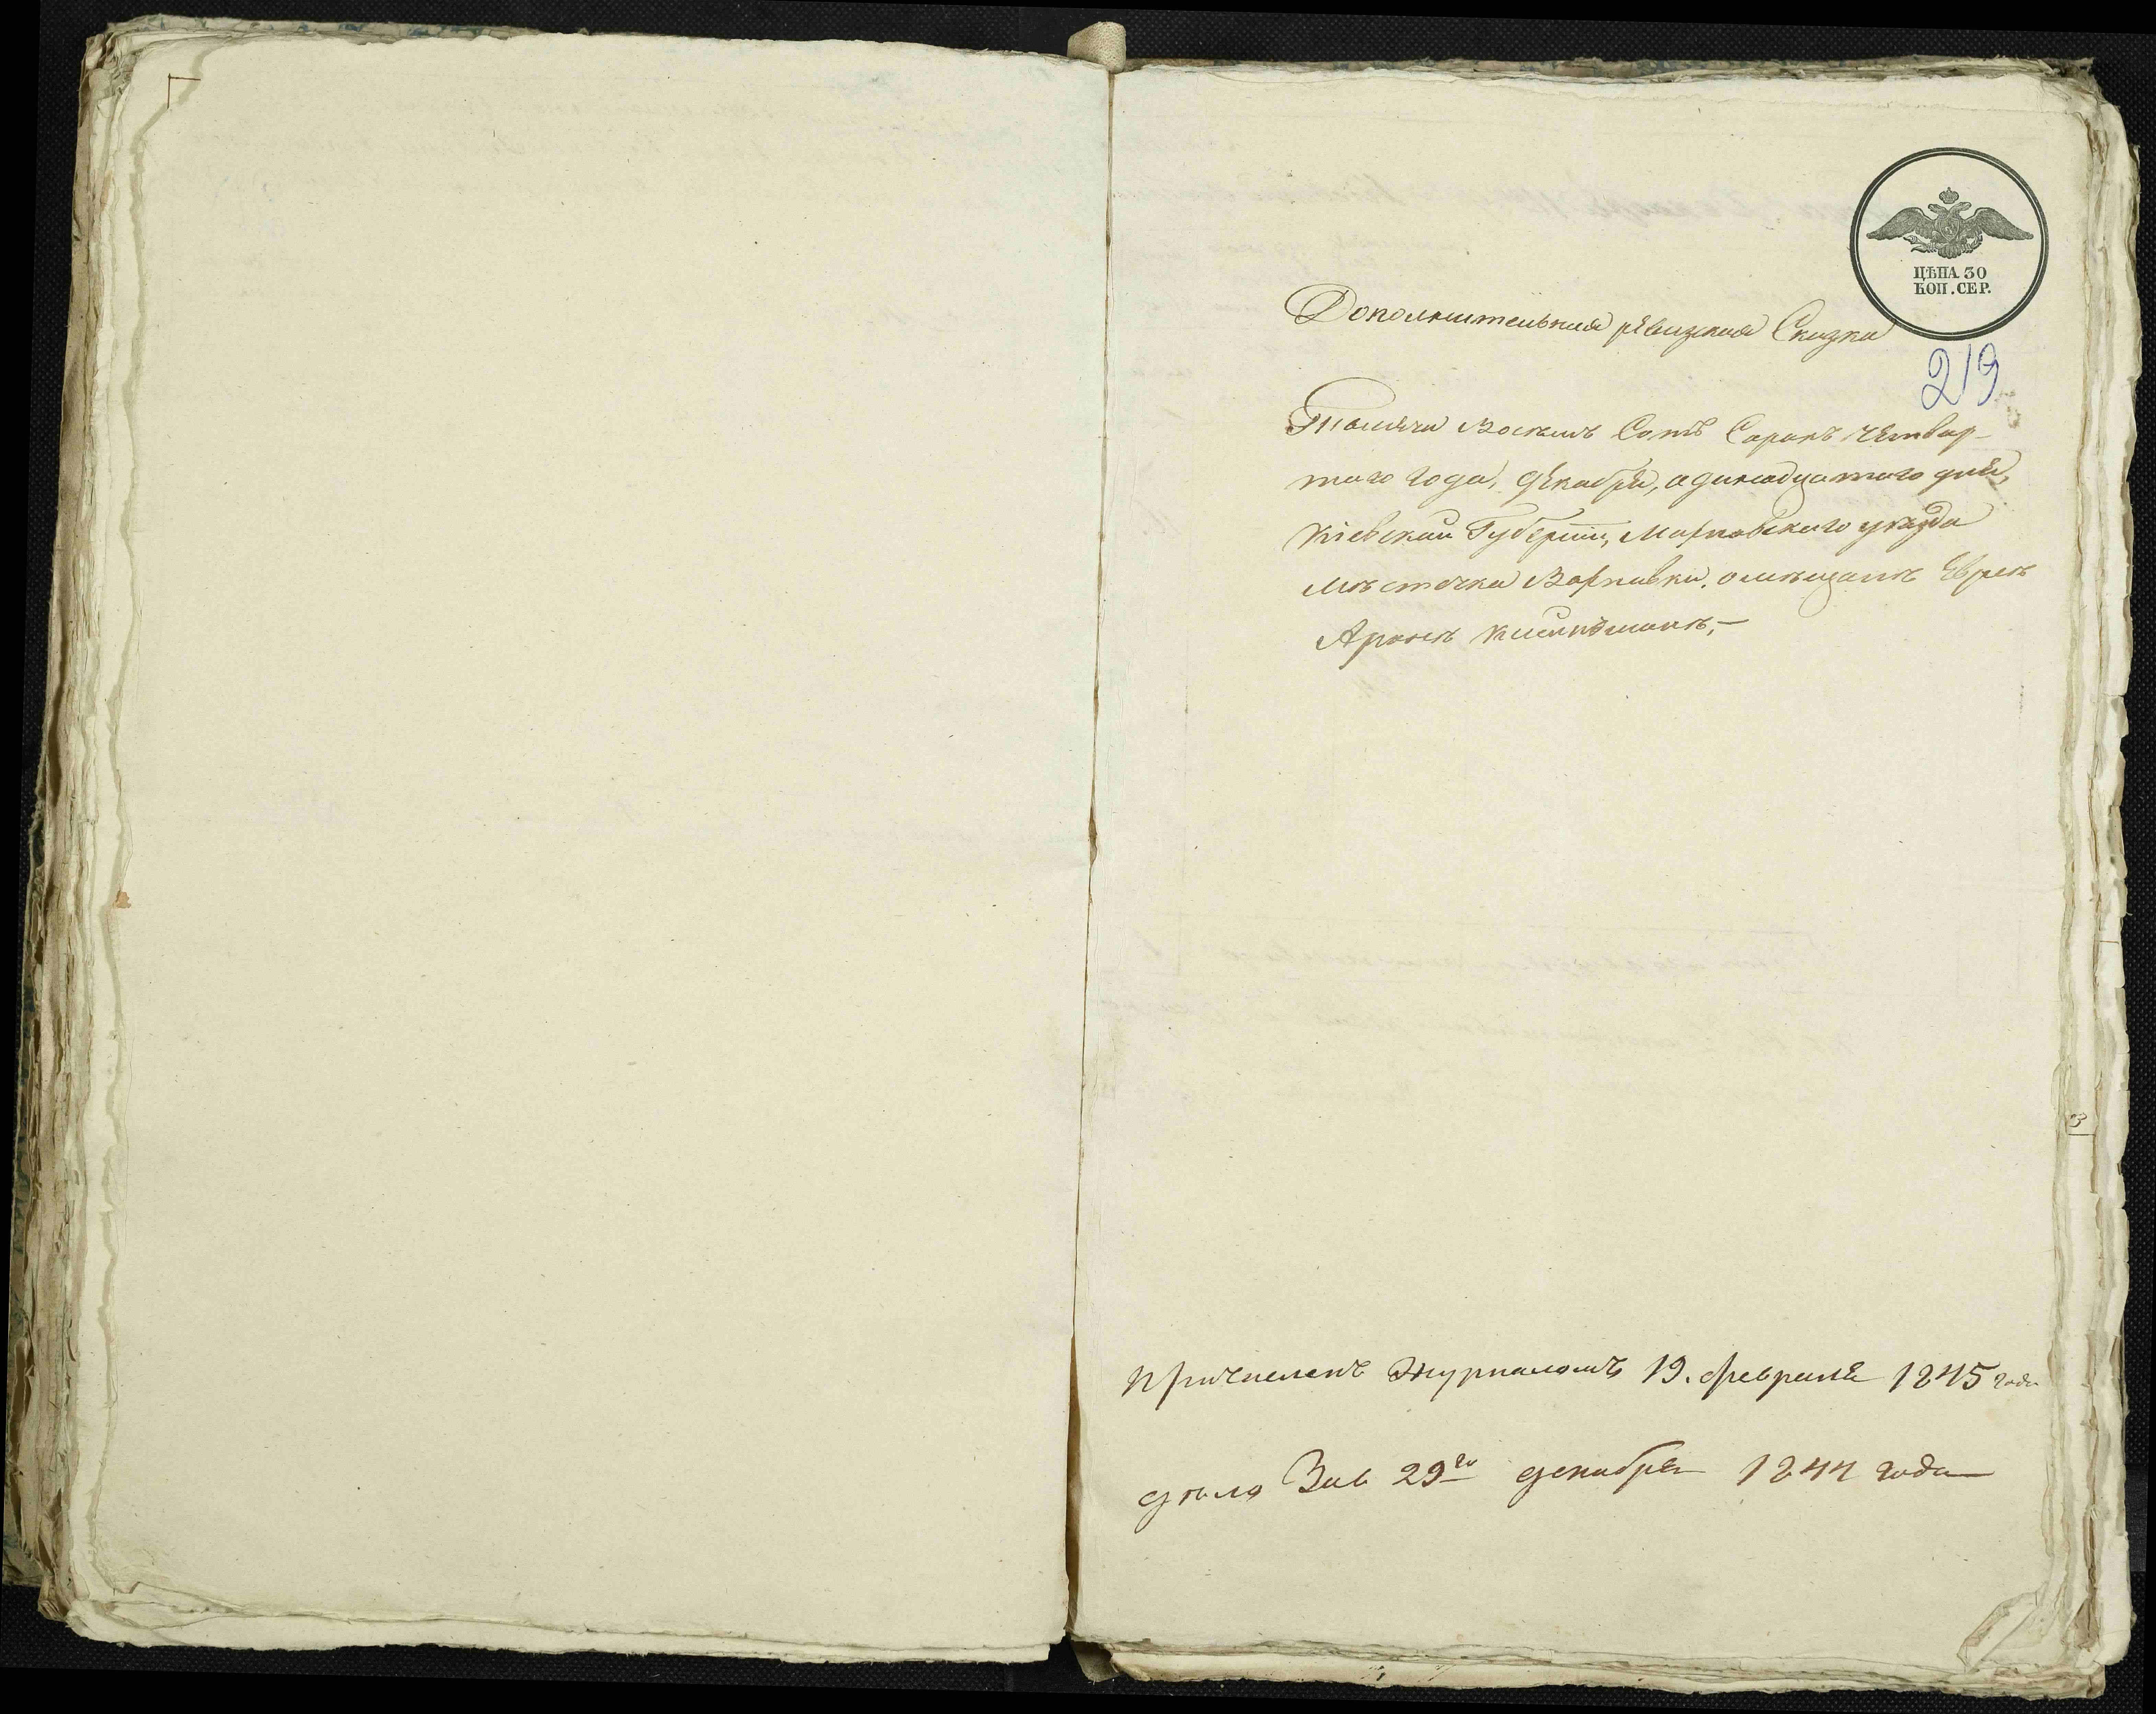 ЦѢНА 30
КОП. СЕР.
Дополнительная ревизская Сказка
219
Тысяча Восемь Сотъ Сорокъ четвер-
того года, декабря, одинадцатого дня,
Кіевской Губерніи, Уѣзда
мѣстечка о мѣщанѣ Евреѣ
Аронѣ
Причисленъ Журналомъ 19. февраля 1845 года
дѣло 29го декабря 1844 года